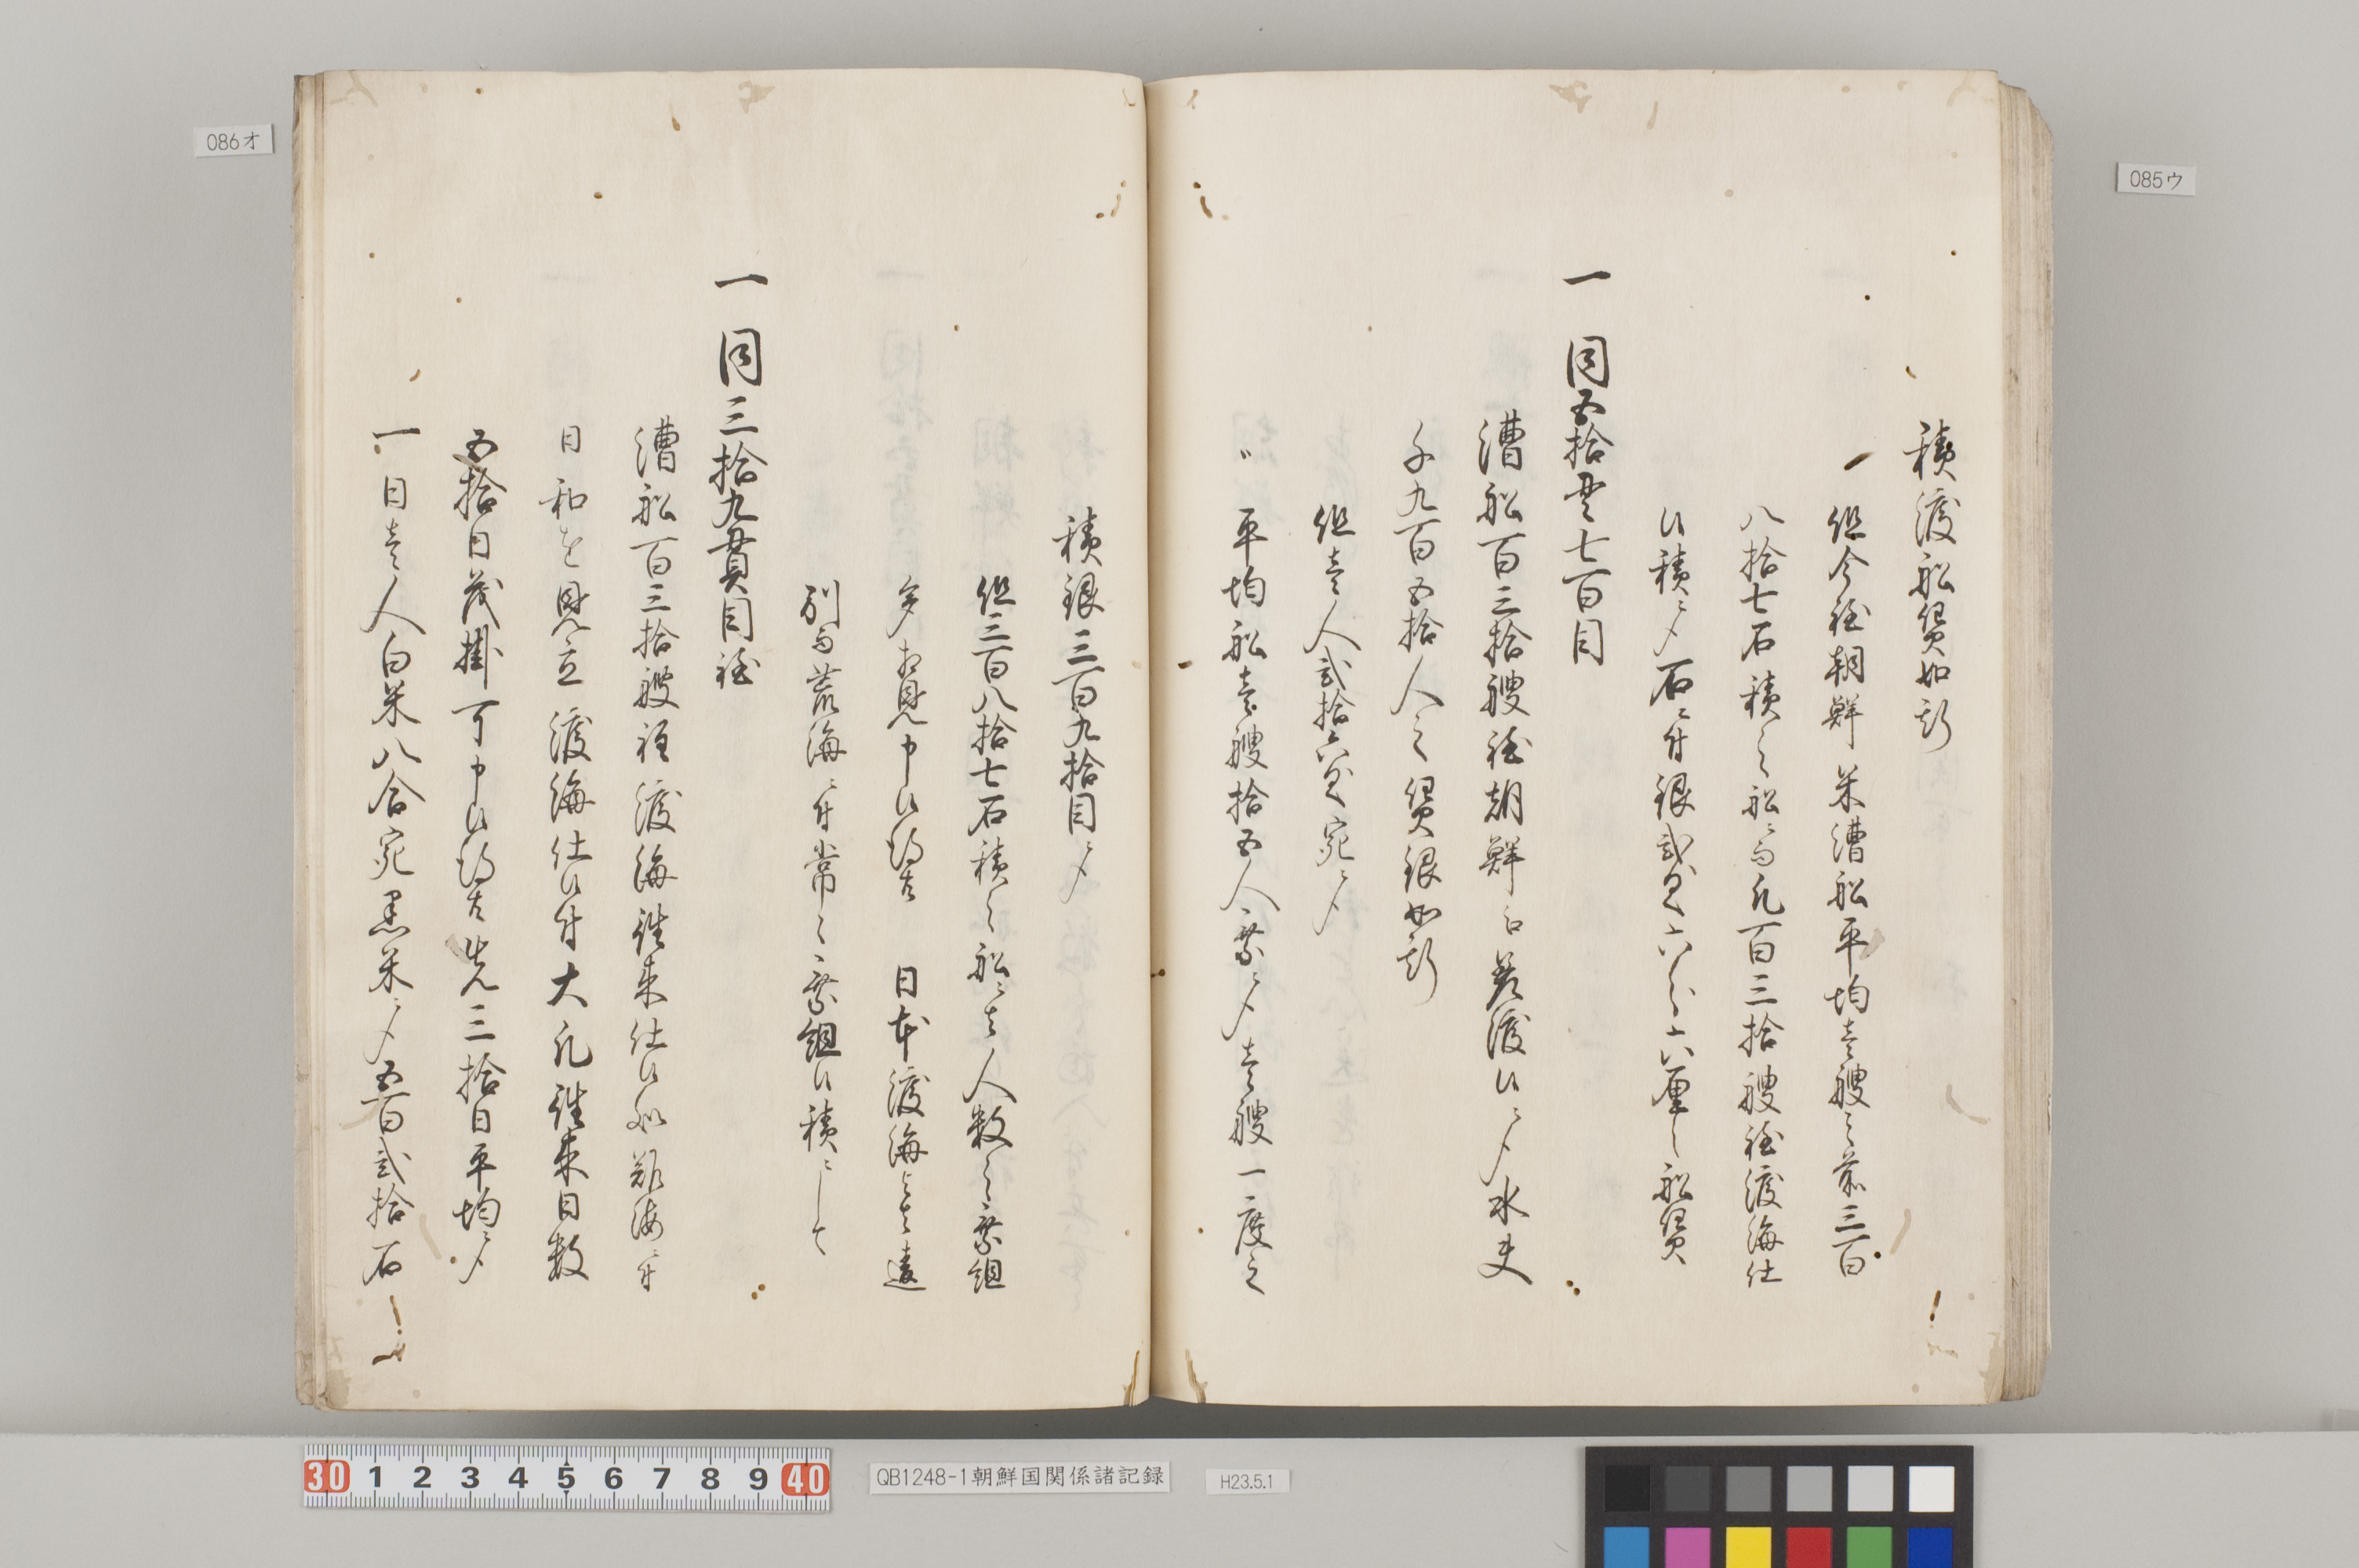 085ウ
積渡船賃如斯
一 但今程朝鮮米漕船平均壱艘ニ前三百
八拾七石積之船ニ而凡百三拾艘程渡海仕
候積ニ〆石ニ付銀弐匁六分六厘之船賃
一 同五拾貫七百目
漕船百三拾艘程朝鮮江差渡候ニ〆水夫
千九百五拾人之賃銀如斯
但壱人弐拾六匁宛ニ〆
〃平均船壱艘拾五人乗ニ〆壱艘一度之
086オ
積銀三百九拾目ニ〆
但三百八拾七石積之船ニ者人数之乗組
多相見申候得共 日本渡海与者違
別而荒海ニ付常々乗組候積ニして
一 同三拾九貫目程
漕船百三拾艘程渡海往来仕候処難海ニ付
日和を見立渡海仕候付大凡往来日数
五拾日茂掛可申候得共先三拾日平均ニ〆
一日壱人白米八合宛黒米ニ〆五百弐拾石
30 1 2 3 4 5 6 7 8 9 40
QB1248-1朝鮮国関係諸記録
H23.5.1